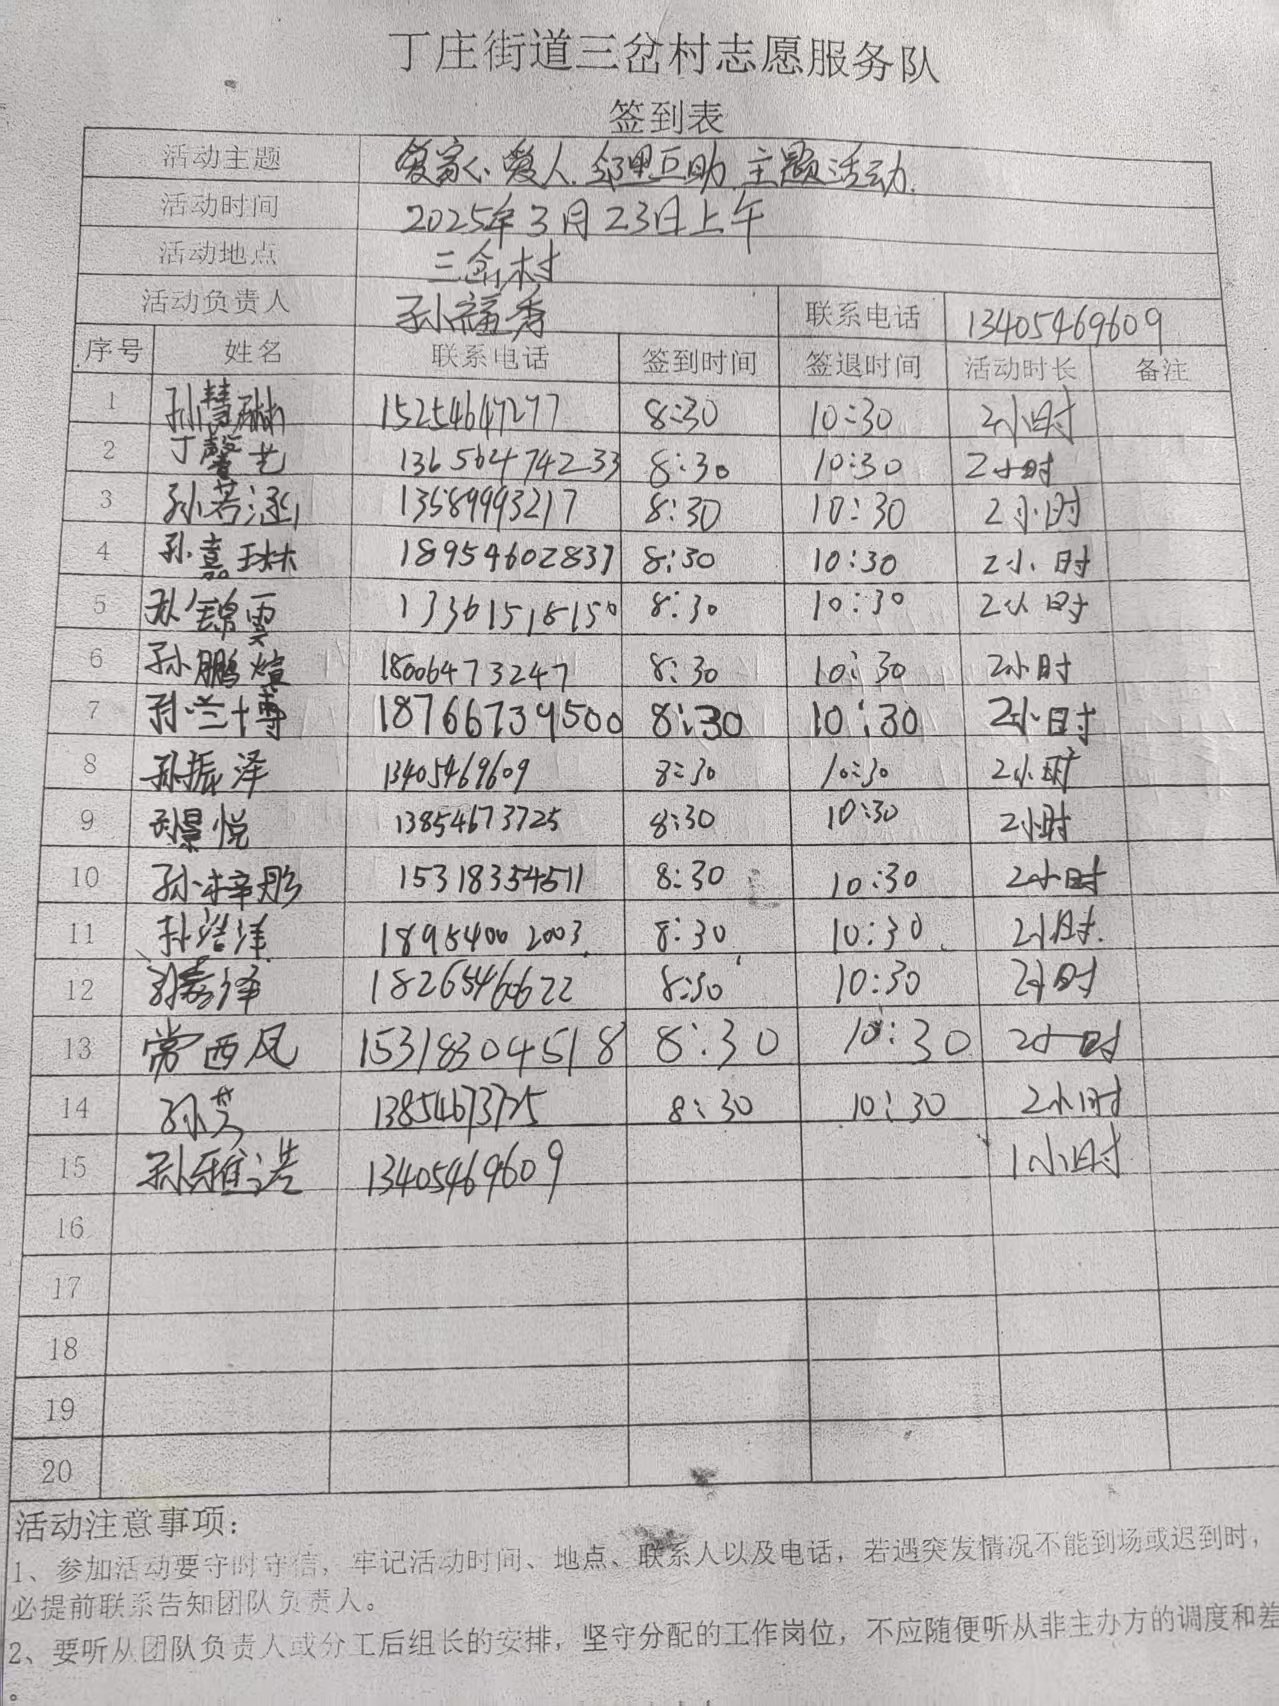 丁庄街道三岔村志愿服务队
签到表
活动主题 爱家、爱人、邻里互助主题活动.
活动时间 2025年3月23日上午
活动地点 三岔村
活动负责人 孙福秀 联系电话 13405469609
序号 姓名 联系电话 签到时间 签退时间 活动时长 备注
1 孙慧琳 15254647277 8:30 10:30 2小时
2 丁馨艺 13656474233 8:30 10:30 2小时
3 孙若涵 13589993217 8:30 10:30 2小时
4 孙嘉琳 18954602837 8:30 10:30 2小时
5 孙锦雯 13361518150 8:30 10:30 2小时
6 孙鹏煊 18006473247 8:30 10:30 2小时
7 孙兰博 18766739500 8:30 10:30 2小时
8 孙振泽 13405469609 8:30 10:30 2小时
9 孙景悦 13854673725 8:30 10:30 2小时
10 孙梓彤 15318354511 8:30 10:30 2小时
11 浩洋 18954002003 8:30 10:30 2小时.
12 嘉泽 18265460622 8:30 10:30 2小时
13 常西凤 15318304518 8:30 10:30 2小时
14 孙艾 13854673725 8:30 10:30 2小时
15 孙雅浩 13405469609 1小时
16
17
18
19
20
活动注意事项：
1、参加活动要守时守信，牢记活动时间、地点、联系人以及电话，若遇突发情况不能到场或迟到时，
必提前联系告知团队负责人。
2、要听从团队负责人或分工后组长的安排，坚守分配的工作岗位，不应随便听从非主办方的调度和差
。